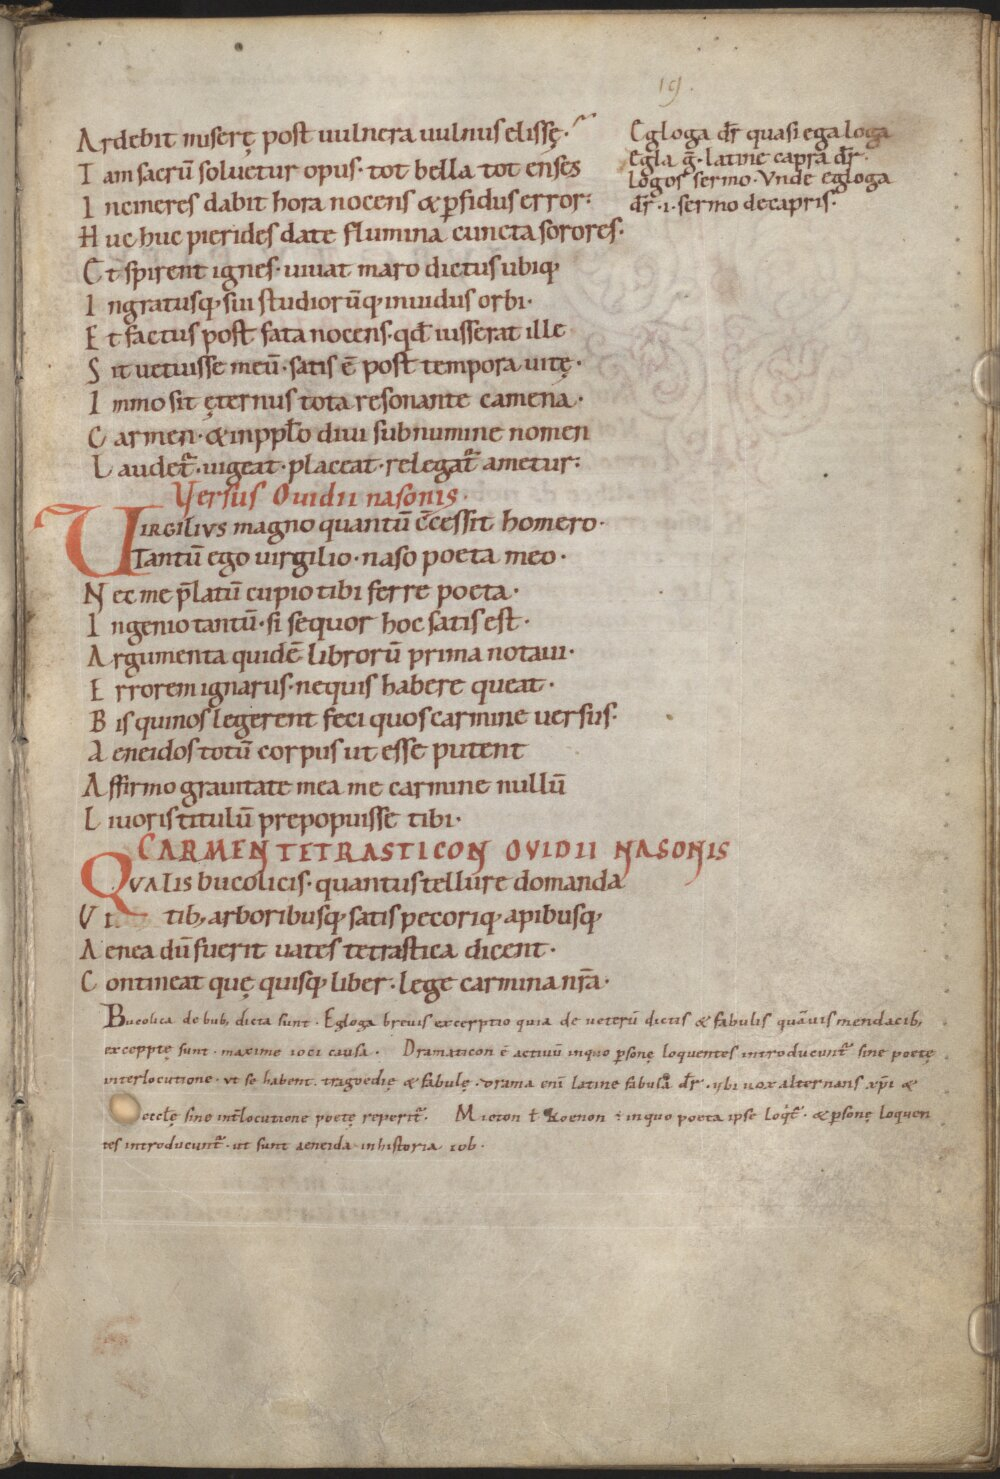 19.
Ardebit miserę post uulnera uulnus elissę.
Iam sacrū soluetur opus· tot bella tot enses
In cineres dabit hora nocens & ꝑfidus error:
Huc huc pierides date flumina cuncta sorores·
Et spirent ignes· uiuat maro dictus ubiq;
Ingratusq; sui studiorūq; inuidus orbi·
Et factus post fata nocens· qđ iusserat ille
Sit uetuisse meū· satis ē post tempora uitę·
Immo sit ęternus tota resonante camena·
Carmen· & in pp̄lo diui sub numine nomen
Laudet̃· uigeat· placeat· relegat̃ ametur:
Egloga dr̄ quasi ega loga
egla g̃· latine capra dr̄·
logos sermo· Vnde egloga
dr̄ ·i· sermo de capris·
Versus Ouidii nasonis·
VIRGILIVS magno quantū c̄cessit homero·
Tantū ego uirgilio· naso poeta meo·
Nec me p̄latū cupio tibi ferre poeta·
Ingenio tantū· si sequor hoc satis est·
Argumenta quidē librorū prima notaui·
Errorem ignarus· nequis habere queat·
Bis quinos legerent feci quos carmine uersus·
Aeneidos totū corpus ut esse putent
Affirmo grauitate mea me carmine nullū
Liuoris titulū prepopuisse tibi·
CARMEN TETRASTICON OVIDII NASONIS
QVALIS bucolicis· quantus tellure domanda
Vi tib; arboribusq; satis pecoriq; apibusq;
Aenea dū fuerit uates tetrastica dicent·
Contineat quę quisq; liber· lege carmina nr̄a·
Bucolica de bub; dicta sunt· Egloga breuis excerptio quia de ueterū dictis & fabulis quāuis mendacib;
exceptę sunt· maxime ioci causa· Dramaticon ē actiuū in quo ꝑsonę loquentes introducunt̃ sine poetę
interlocutione· ut se habent tragoedię & fabulę· drama eni latine fabula dr̄· ybi uox alternans xp̄i &
ęcclę sine int̄locutione poetę reperit̃· Micton ł koenon ē in quo poeta ipse loqt̃· & ꝑsonę loquen
tes introducunt̃· ut sunt aeneida· in historia iob·